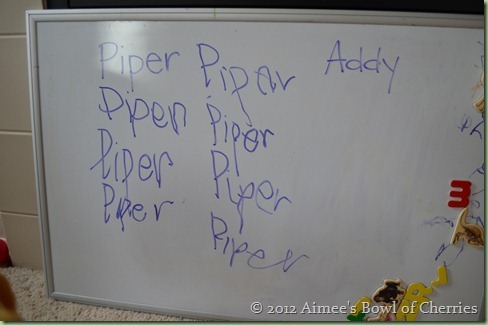 Piper Pipar Addy
Pipen Piper
Piper Piper
Piper Piper
m
© 2012 Aimee's Bowl of Cherries